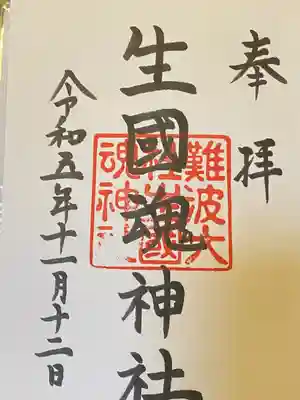 奉拝
生國魂神社
令和五年十一月十二日
難波大
魂神